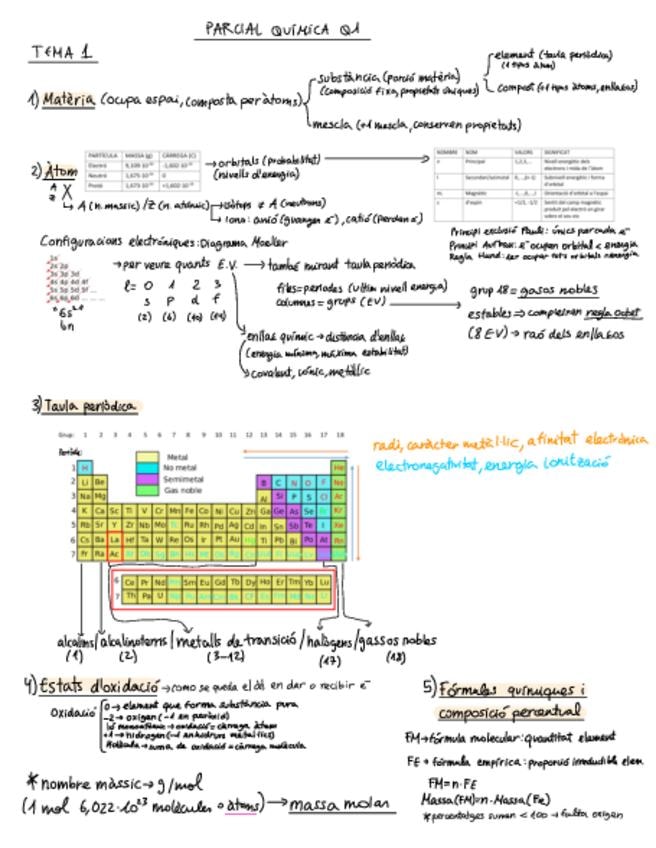 PARCIAL QUÍMICA Q1
TEMA 1
1) Matèria (ocupa espai, composta per àtoms)
substància (porció matèria)
(composició fixa, propietats úniques)
element (taula periòdica)
(1 tipus àtom)
compost (+1 tipus àtoms, enllaços)
mescla (+1 mescla, conserven propietats)
2) Àtom
PARTÍCULA MASSA (g) CÀRREGA (C)
Electró 9,109·10⁻²⁸ -1,602·10⁻¹⁹
Neutró 1,675·10⁻²⁴ 0
Protó 1,673·10⁻²⁴ +1,602·10⁻¹⁹
→ orbitals (probabilitat)
(nivells d'energia)
NOMBRE NOM VALORS SIGNIFICAT
n Principal 1,2,3,... Nivell energètic dels electrons i mida de l'àtom
l Secundari/azimutal 0,...,(n-1) Subnivell energètic i forma d'orbital
mₗ Magnètic -l,...,0,...,l Orientació d'orbital a l'espai
s d'espín +1/2, -1/2 Sentit del camp magnètic produït pel electró en girar sobre el seu eix
A
Z X
→ A (n. massic) / Z (n. atòmic)
→ isòtops ≠ A (neutrons)
→ Ions: anió (guanyen e⁻), catió (perden e⁻)
Principi exclusió Pauli: únics per cada e⁻
Principi Aufbau: e⁻ ocupen orbital < energia
Regla Hund:
Configuracions electròniques: Diagrama Moeller
1s
2s 2p
3s 3p 3d
4s 4p 4d 4f
5s 5p 5d 5f ...
6s 6p 6d ...
→ per veure quants E.V. → també mirant taula periòdica
l= 0 1 2 3
s p d f
(2) (6) (10) (14)
files = períodes (últim nivell energia)
columnes = grups (EV)
grup 18 = gasos nobles
estables ⇒ compleixen regla octet
(8 EV) → raó dels enllaços
enllaç químic → distància d'enllaç
(energia mínima, màxima estabilitat)
→ covalent, iònic, metàl·lic
3) Taula periòdica
Grup: 1 2 3 4 5 6 7 8 9 10 11 12 13 14 15 16 17 18
Període:
Metal
No metal
Semimetal
Gas noble
1 H He
2 Li Be B C N O F Ne
3 Na Mg Al Si P S Cl Ar
4 K Ca Sc Ti V Cr Mn Fe Co Ni Cu Zn Ga Ge As Se Br Kr
5 Rb Sr Y Zr Nb Mo Tc Ru Rh Pd Ag Cd In Sn Sb Te I Xe
6 Cs Ba La Hf Ta W Re Os Ir Pt Au Hg Tl Pb Bi Po At Rn
7 Fr Ra Ac
6 Ce Pr Nd Pm Sm Eu Gd Tb Dy Ho Er Tm Yb Lu
7 Th Pa U
radi, caràcter metàl·lic, afinitat electrònica
electronegativitat, energia ionització
alcalins / alcalinoterris / metalls de transició / halògens / gassos nobles
(1) (2) (3-12) (17) (18)
4) Estats d'oxidació → como se queda el àt. en dar o recibir e⁻
Oxidació
0 → element que forma substància pura
-2 → oxigen (-1 en peròxid)
+1 → hidrogen (-1 en hidrurs metàl·lics)
Molècula → suma de oxidació = càrrega molècula
5) Fórmules químiques i
composició percentual
FM → fórmula molecular: quantitat element
FE → fórmula empírica: proporció irreducible elem.
FM = n·FE
Massa (FM) = n·Massa (FE)
*percentatges sumen < 100 → falta oxigen
* nombre màssic → g/mol
(1 mol 6,022·10²³ molècules o àtoms) → massa molar